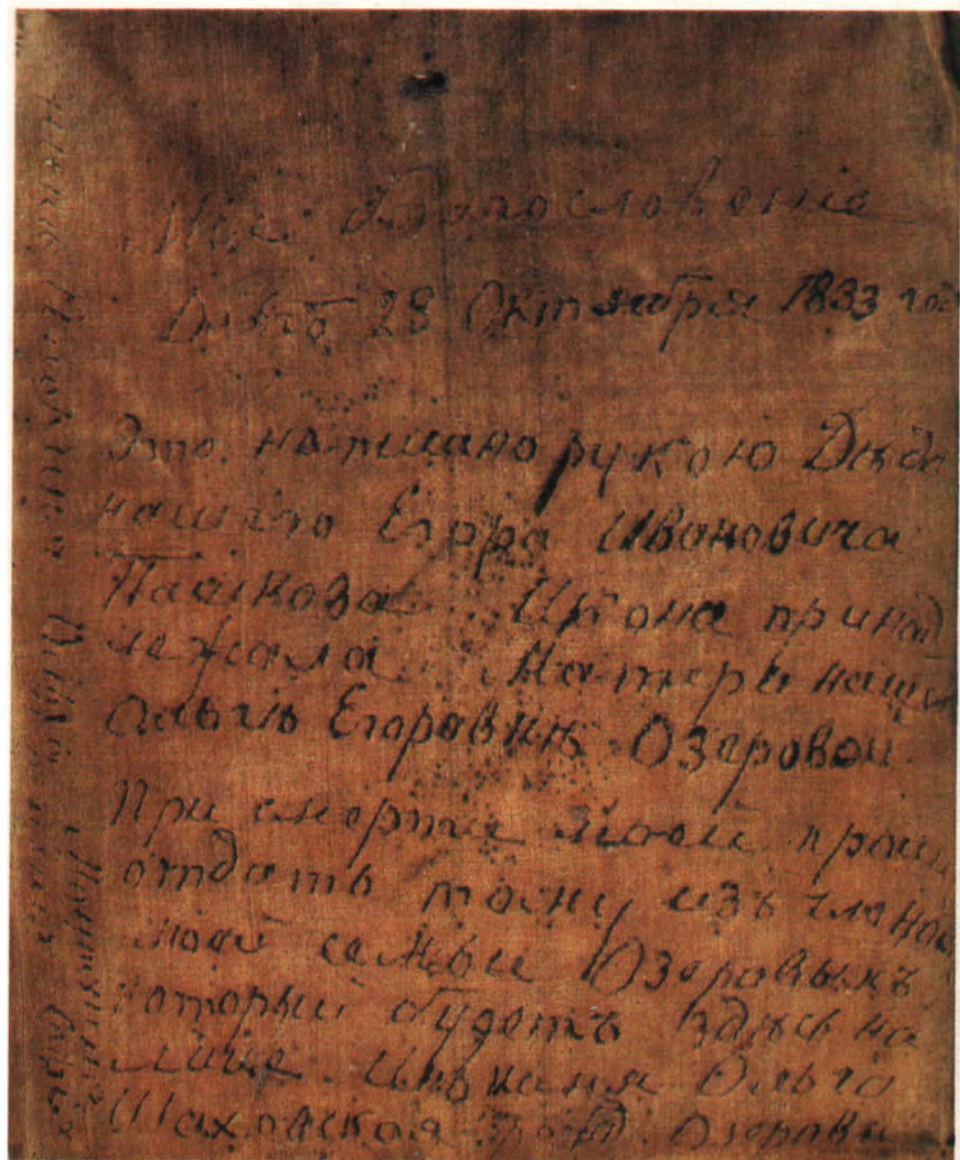 Мое благословеніе
28 Октября 1833 год
Это написано рукою Дѣда
нашего Егора Ивановича
Пашкова Икона принад
лежала Матери нашей
Ольгѣ Егоровнѣ Озеровой
При смерти моей прошу
отдать тому изъ членов
моей семьи Озеровыхъ
который будетъ здѣсь на
лице. Ольга
Шаховская рожд. Озерова